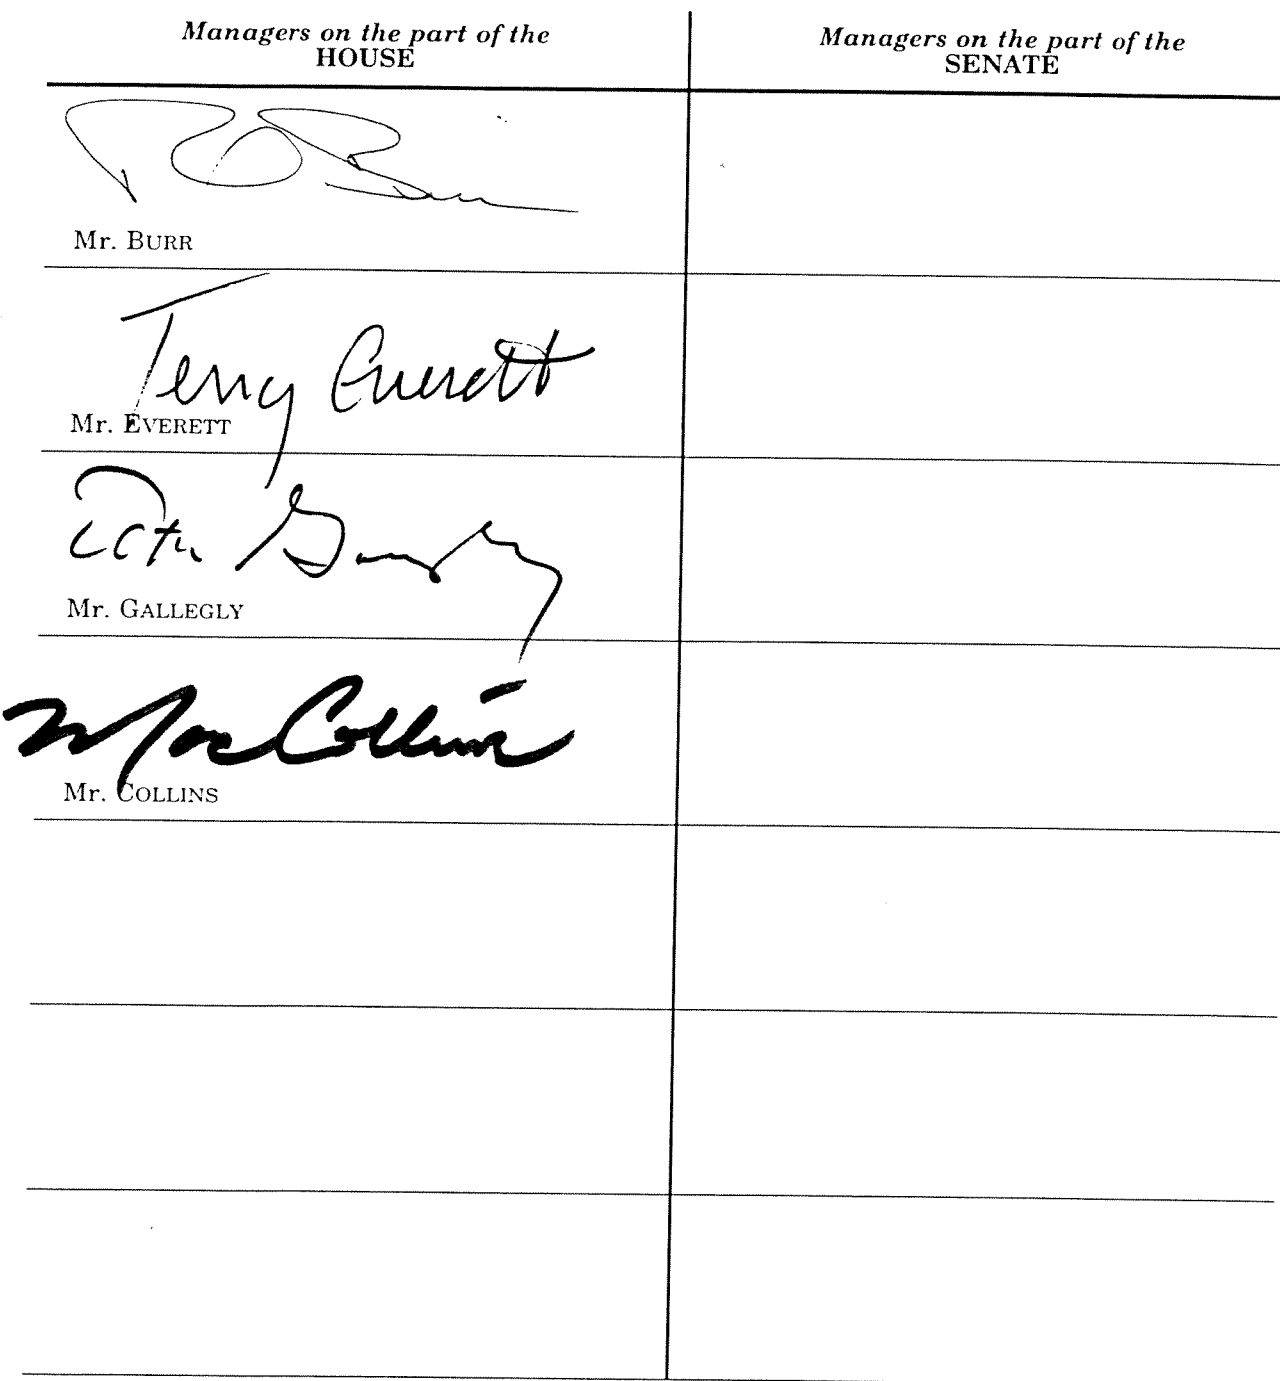 Managers on the part of the
HOUSE
Managers on the part of the
SENATE
Mr. BURR
Terry Everett
Mr. EVERETT
Mr. GALLEGLY
Mac Collins
Mr. COLLINS